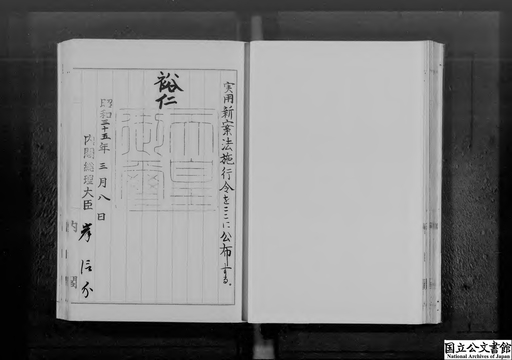 実用新案法施行令をここに公布する。
裕仁
天皇
御璽
昭和三十五年三月八日
内閣総理大臣 岸信介
内閣
国立公文書館
National Archives of Japan